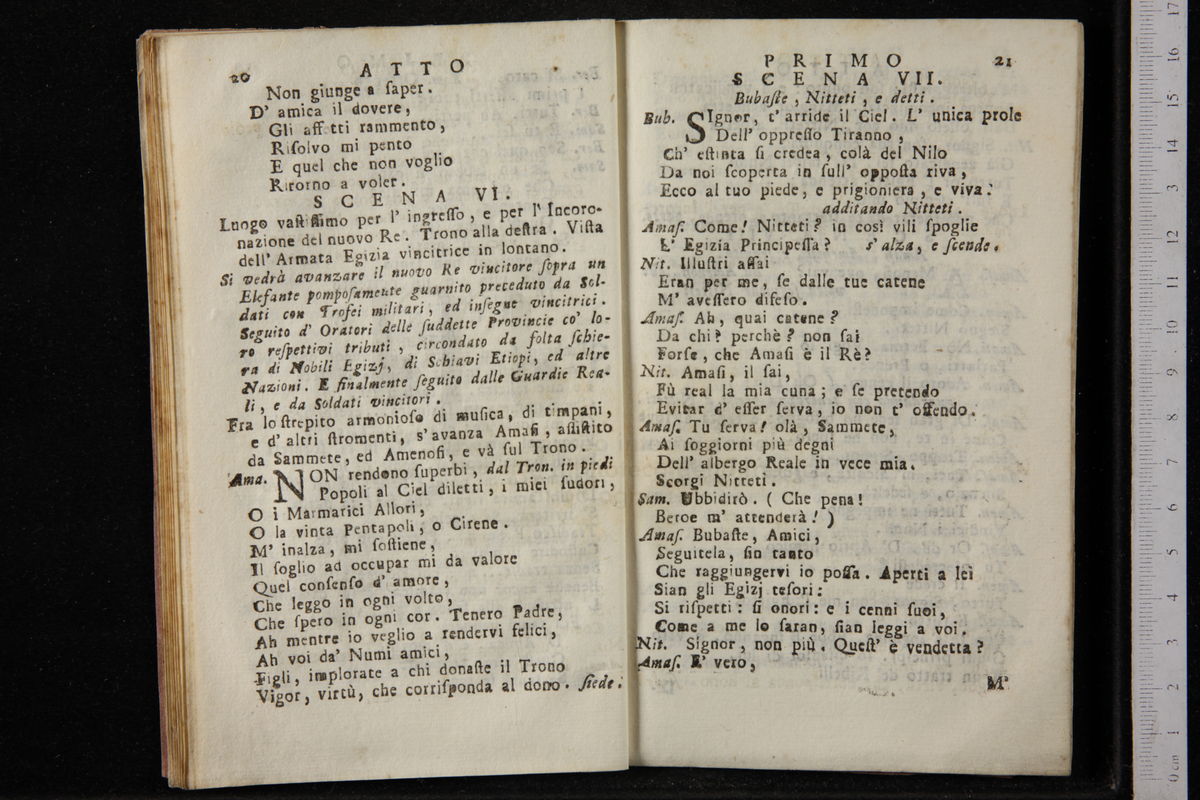 20 ATTO
Non giunge a ſaper.
D' amica il dovere,
Gli affetti rammento,
Riſolvo mi pento
E quel che non voglio
Ritorno a voler.
SCENA VI.
Luogo vaſtiſſimo per l' ingreſſo, e per l' Incoro-
nazione del nuovo Re. Trono alla deſtra. Viſta
dell' Armata Egizia vincitrice in lontano.
Si vedrà avanzare il nuovo Re vincitore ſopra un
Elefante pompoſamente guarnito preceduto da Sol-
dati con Trofei militari, ed inſegne vincitrici.
Seguito d' Oratori delle ſuddette Provincie co' lo-
ro reſpettivi tributi, circondato da folta ſchie-
ra di Nobili Egizj, di Schiavi Etiopi, ed altre
Nazioni. E finalmente ſeguito dalle Guardie Rea-
li, e da Soldati vincitori.
Fra lo ſtrepito armonioſo di muſica, di timpani,
e d' altri ſtromenti, s' avanza Amaſi, aſſiſtito
da Sammete, ed Amenofi, e và ſul Trono.
Ama. NON rendono ſuperbi, dal Tron. in piedi
Popoli al Ciel diletti, i miei ſudori,
O i Marmarici Allori,
O la vinta Pentapoli, o Cirene.
M' inalza, mi ſoſtiene,
Il ſoglio ad occupar mi da valore
Quel conſenſo d' amore,
Che leggo in ogni volto,
Che ſpero in ogni cor. Tenero Padre,
Ah mentre io veglio a rendervi felici,
Ah voi da' Numi amici,
Figli, implorate a chi donaſte il Trono
Vigor, virtù, che corriſponda al dono. ſiede.
PRIMO 21
SCENA VII.
Bubaſte, Nitteti, e detti.
Bub. SIgnor, t' arride il Ciel. L' unica prole
Dell' oppreſſo Tiranno,
Ch' eſtinta ſi credea, colà del Nilo
Da noi ſcoperta in ſull' oppoſta riva,
Ecco al tuo piede, e prigioniera, e viva.
additando Nitteti.
Amaſ. Come! Nitteti? in così vili ſpoglie
L' Egizia Principeſſa? s' alza, e ſcende.
Nit. Illuſtri aſſai
Eran per me, ſe dalle tue catene
M' aveſſero difeſo.
Amaſ. Ah, quai catene?
Da chi? perchè? non ſai
Forſe, che Amaſi è il Rè?
Nit. Amaſi, il ſai,
Fù real la mia cuna; e ſe pretendo
Evitar d' eſſer ſerva, io non t' offendo.
Amaſ. Tu ſerva! olà, Sammete,
Ai ſoggiorni più degni
Dell' albergo Reale in vece mia.
Scorgi Nitteti.
Sam. Ubbidirò. ( Che pena!
Beroe m' attenderà! )
Amaſ. Bubaſte, Amici,
Seguitela, ſin tanto
Che raggiungervi io poſſa. Aperti a lei
Sian gli Egizj teſori:
Si riſpetti: ſi onori: e i cenni ſuoi,
Come a me lo ſaran, ſian leggi a voi.
Nit. Signor, non più. Queſt' è vendetta?
Amaſ. E' vero,
M'